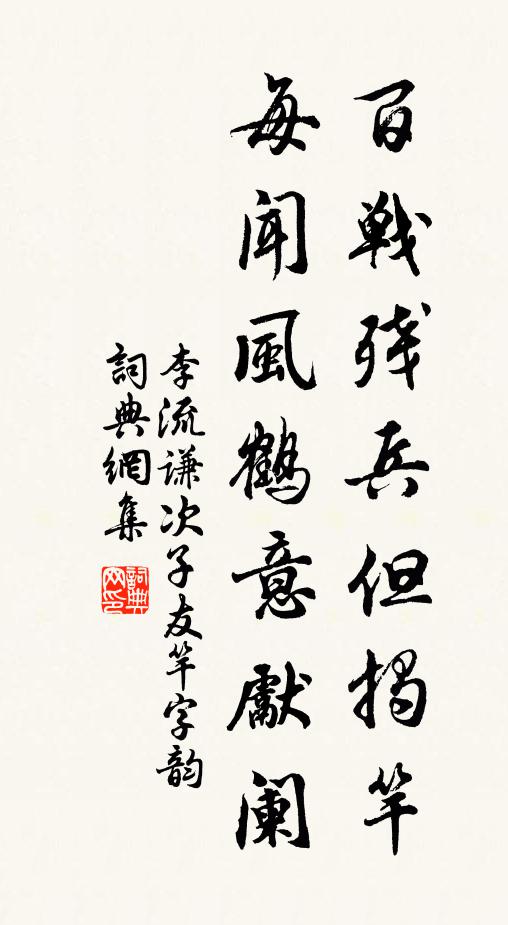 百戰残兵但揭竿
每聞風鶴意獻闌
李流謙次子友竿字韵
詞典網集
詞典網印